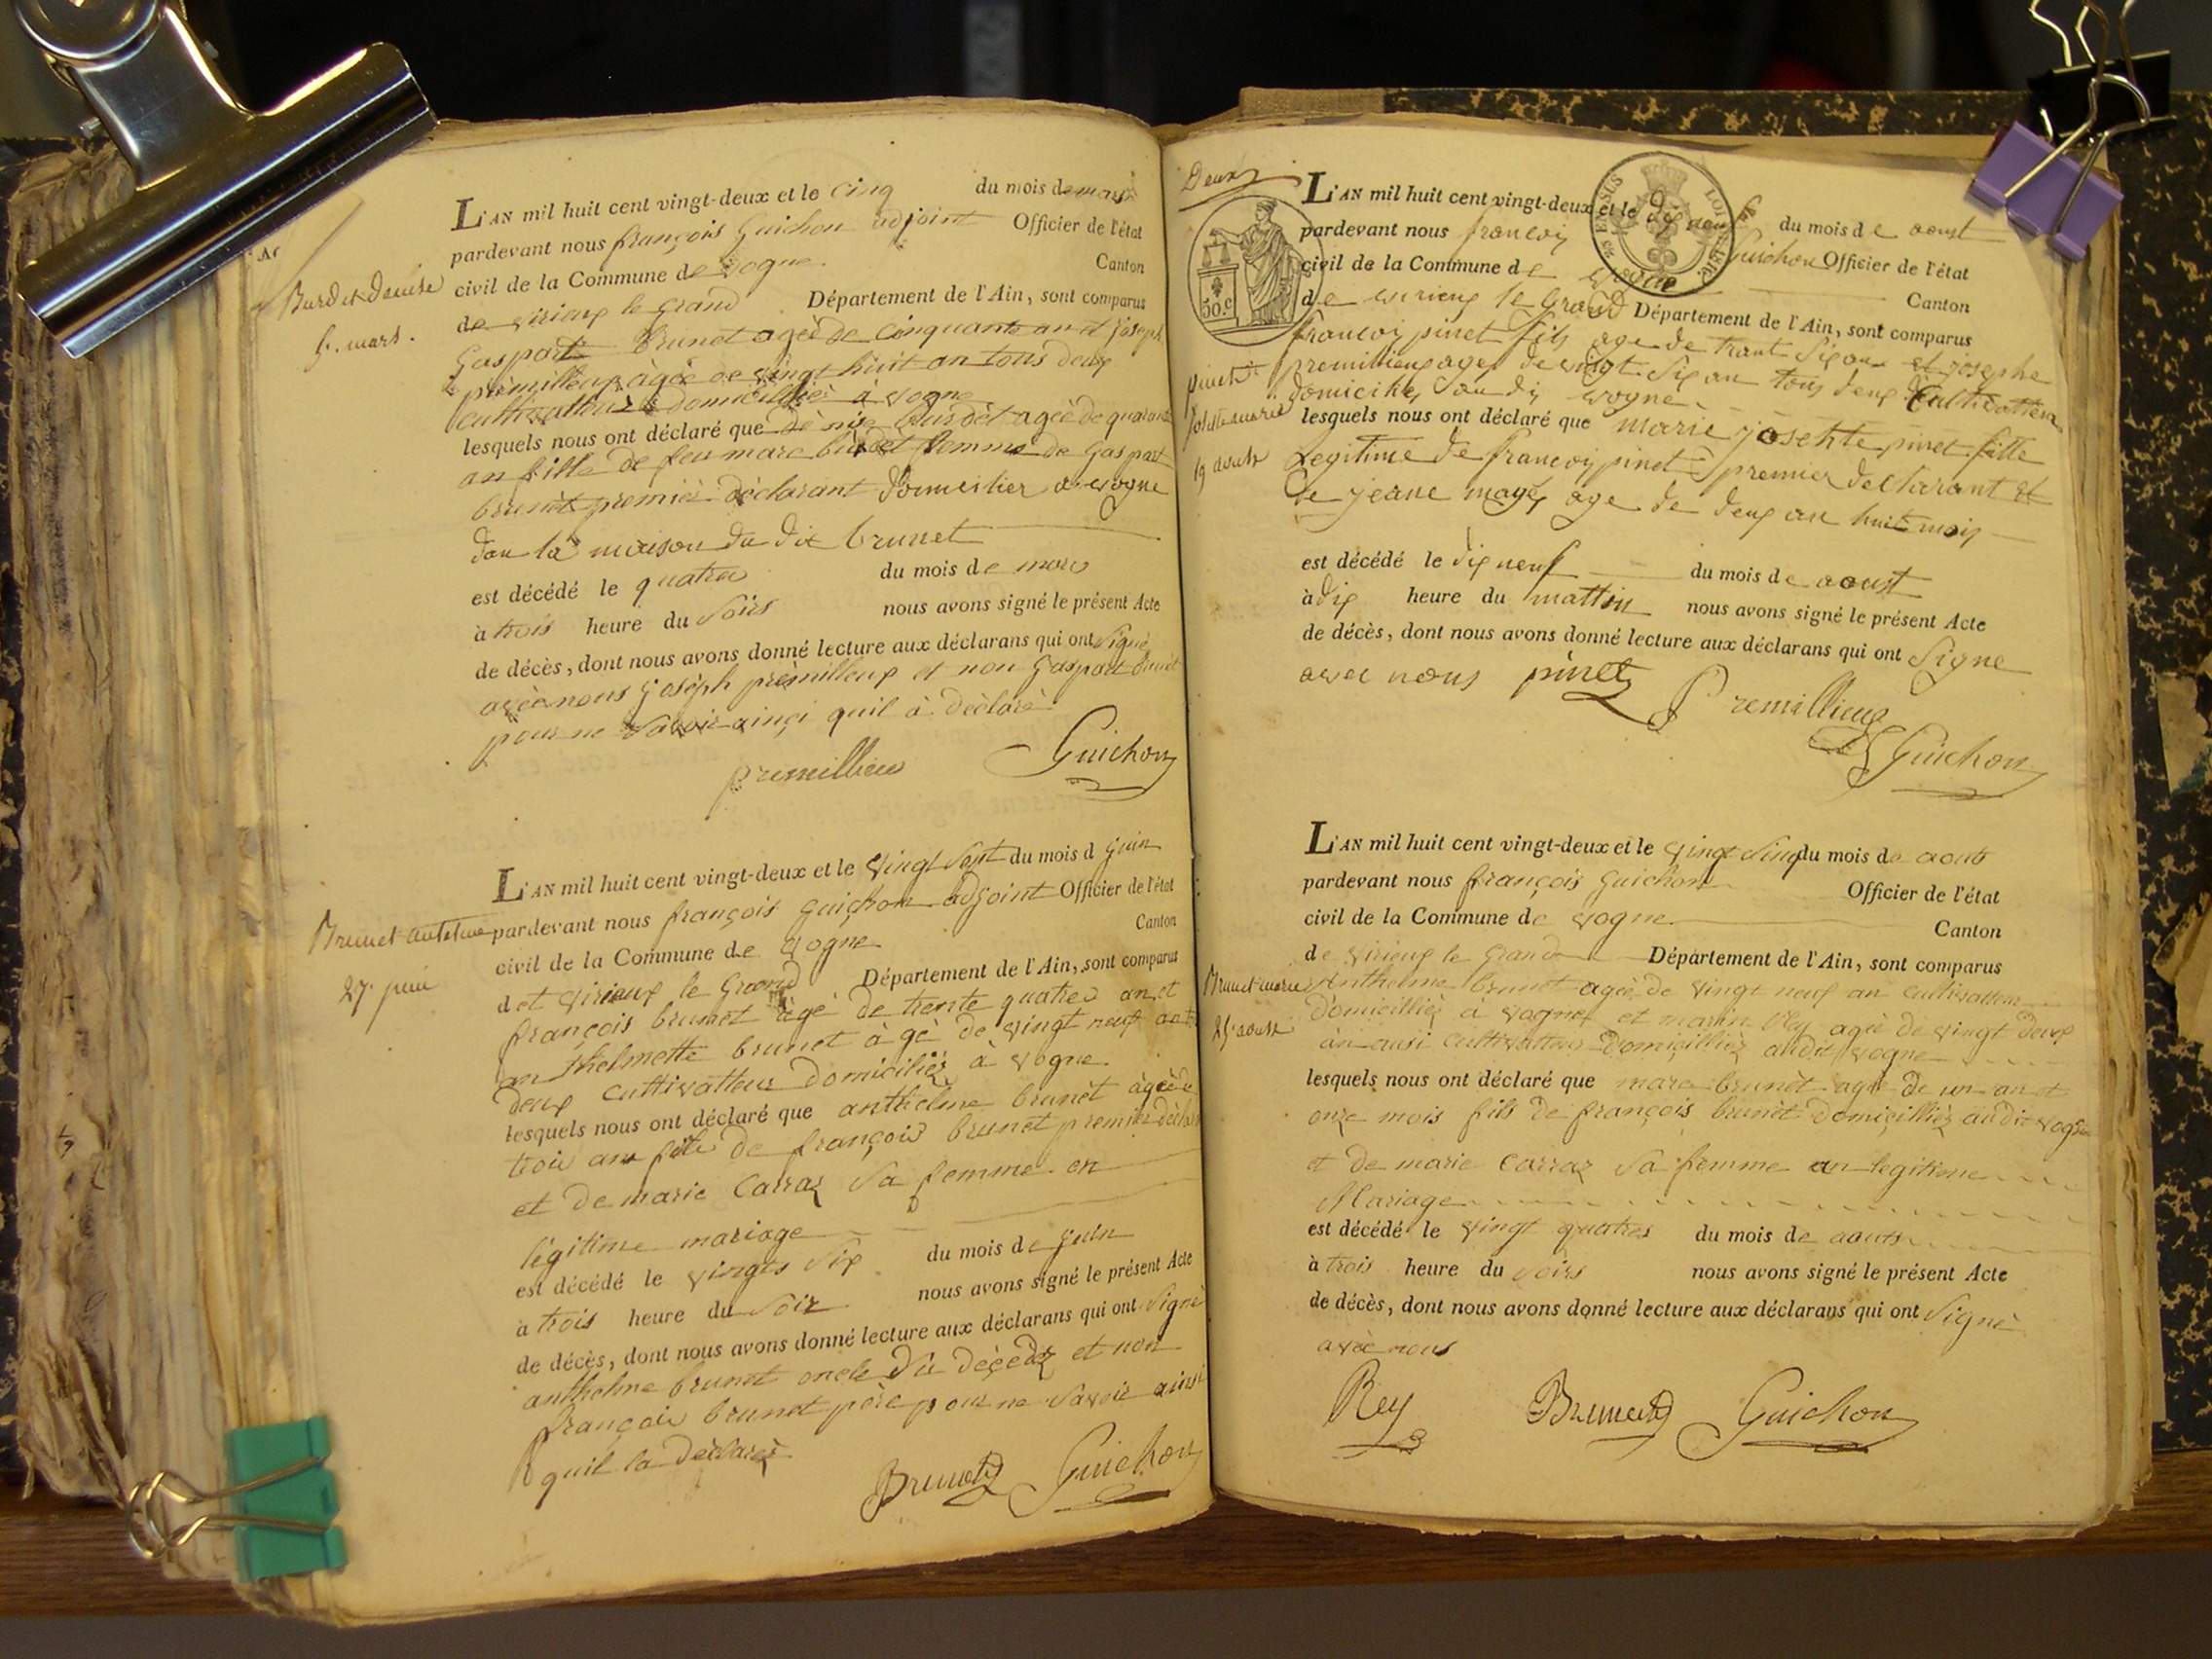 Burdet denise
5. mars.
L'AN mil huit cent vingt-deux et le cinq du mois de mars
pardevant nous françois Guichon adjoint Officier de l'état
civil de la Commune de vogne. Canton
de virieux le grand Département de l'Ain, sont comparus
Gaspart Brunet agée de cinquante an et joseph
prèmilleux àgée de vingt huit an tous deux
cultivatteurs domicilliés à vogne
lesquels nous ont déclaré que dènise burdèt agèe de quarante
an fille de feu marc burdet femme de Gaspart
brunèt premier dèclarant domicilier a vogne
dan la maison du dit brunet
est décédé le quatre du mois de mars
à trois heure du Soirs nous avons signé le présent Acte
de décès, dont nous avons donné lecture aux déclarans qui ont Signè
avèc nous joseph prèmilleux et non Gaspart brunèt
pour ne Savoir ainçi quil à dèclarè
premillieu Guichon
Brunet antelme
27. juin
L'AN mil huit cent vingt-deux et le vingt Sept du mois d juin
pardevant nous françois guichon adjoint Officier de l'état
civil de la Commune de vogne Canton
det virieux le Grand Département de l'Ain, sont comparus
françois brunet àgé de trente quatre an et
anthelmette brunet à gé de vingt neuf an
deux cultivatteur domiciliés à vogne.
lesquels nous ont déclaré que anthelme brunèt àgèe de
trois an fils de françois brunet premier
et de marie Carraz Sa femme en
lègitime mariage
est décédé le vingts Six du mois de juin
à trois heure du Soir nous avons signé le présent Acte
de décès, dont nous avons donné lecture aux déclarans qui ont Signè
anthelme brunet oncle du dècèdé et non
françois brunet père pour ne Savoir ainsi
quil la dèclarèr
Brunet Guichon
Deux
30.c
pinet
josette marie
19 aoust
L'AN mil huit cent vingt-deux et le dix neuf du mois de aoust
pardevant nous francois Guichon Officier de l'état
civil de la Commune de vogne Canton
de virieux le Grand Département de l'Ain, sont comparus
francois pinet fils age de trant Six an et josephe
premillieux age de vingt Six an tous deux Cultivatteur
domicilies au di vogne
lesquels nous ont déclaré que marie josehte pinet fille
Legitime de francois pinet premier declarant et
de jeane age de deux an huit mois
est décédé le dix neuf du mois de aoust
à dix heure du mattin nous avons signé le présent Acte
de décès, dont nous avons donné lecture aux déclarans qui ont Signe
avec nous pinet Premillieux
Guichon
Brunet marc
25. aoust
L'AN mil huit cent vingt-deux et le vingt Sinq du mois de aouts
pardevant nous françois guichon Officier de l'état
civil de la Commune de vogne Canton
de virieux le Grand Département de l'Ain, sont comparus
Anthelme brunet agèe de vingt neuf an cultivatteur
domicilliès à vogne et martin Rey agèe de vingt deux
àn ausi cultivatteur domicilliés audit vogne
lesquels nous ont déclaré que marc brunèt agèe de un àn et
onze mois fils de françois brunèt domicilliéz au dit vogne
et de marie Carraz Sa femme an legitime
Mariage
est décédé le vingt quatres du mois de aouts
à trois heure du Soirs nous avons signé le présent Acte
de décès, dont nous avons donné lecture aux déclarans qui ont Signè
avèc nous
Rey Brunet Guichon